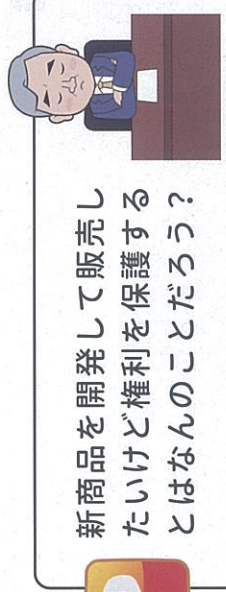 新商品を開発して販売し
たいけど権利を保護する
とはなんのことだろう？